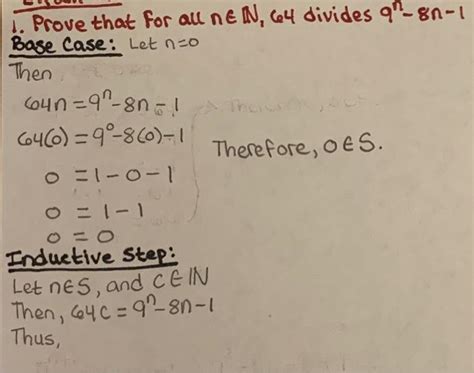 1. Prove that for all n∈ℕ, 64 divides 9ⁿ-8n-1
Base Case: Let n=0
Then
64n=9ⁿ-8n-1
64(0)=9⁰-8(0)-1
Therefore, 0∈S.
0 =1-0-1
0 =1-1
0=0
Inductive Step:
Let n∈S, and C∈ℕ
Then, 64C=9ⁿ-8n-1
Thus,